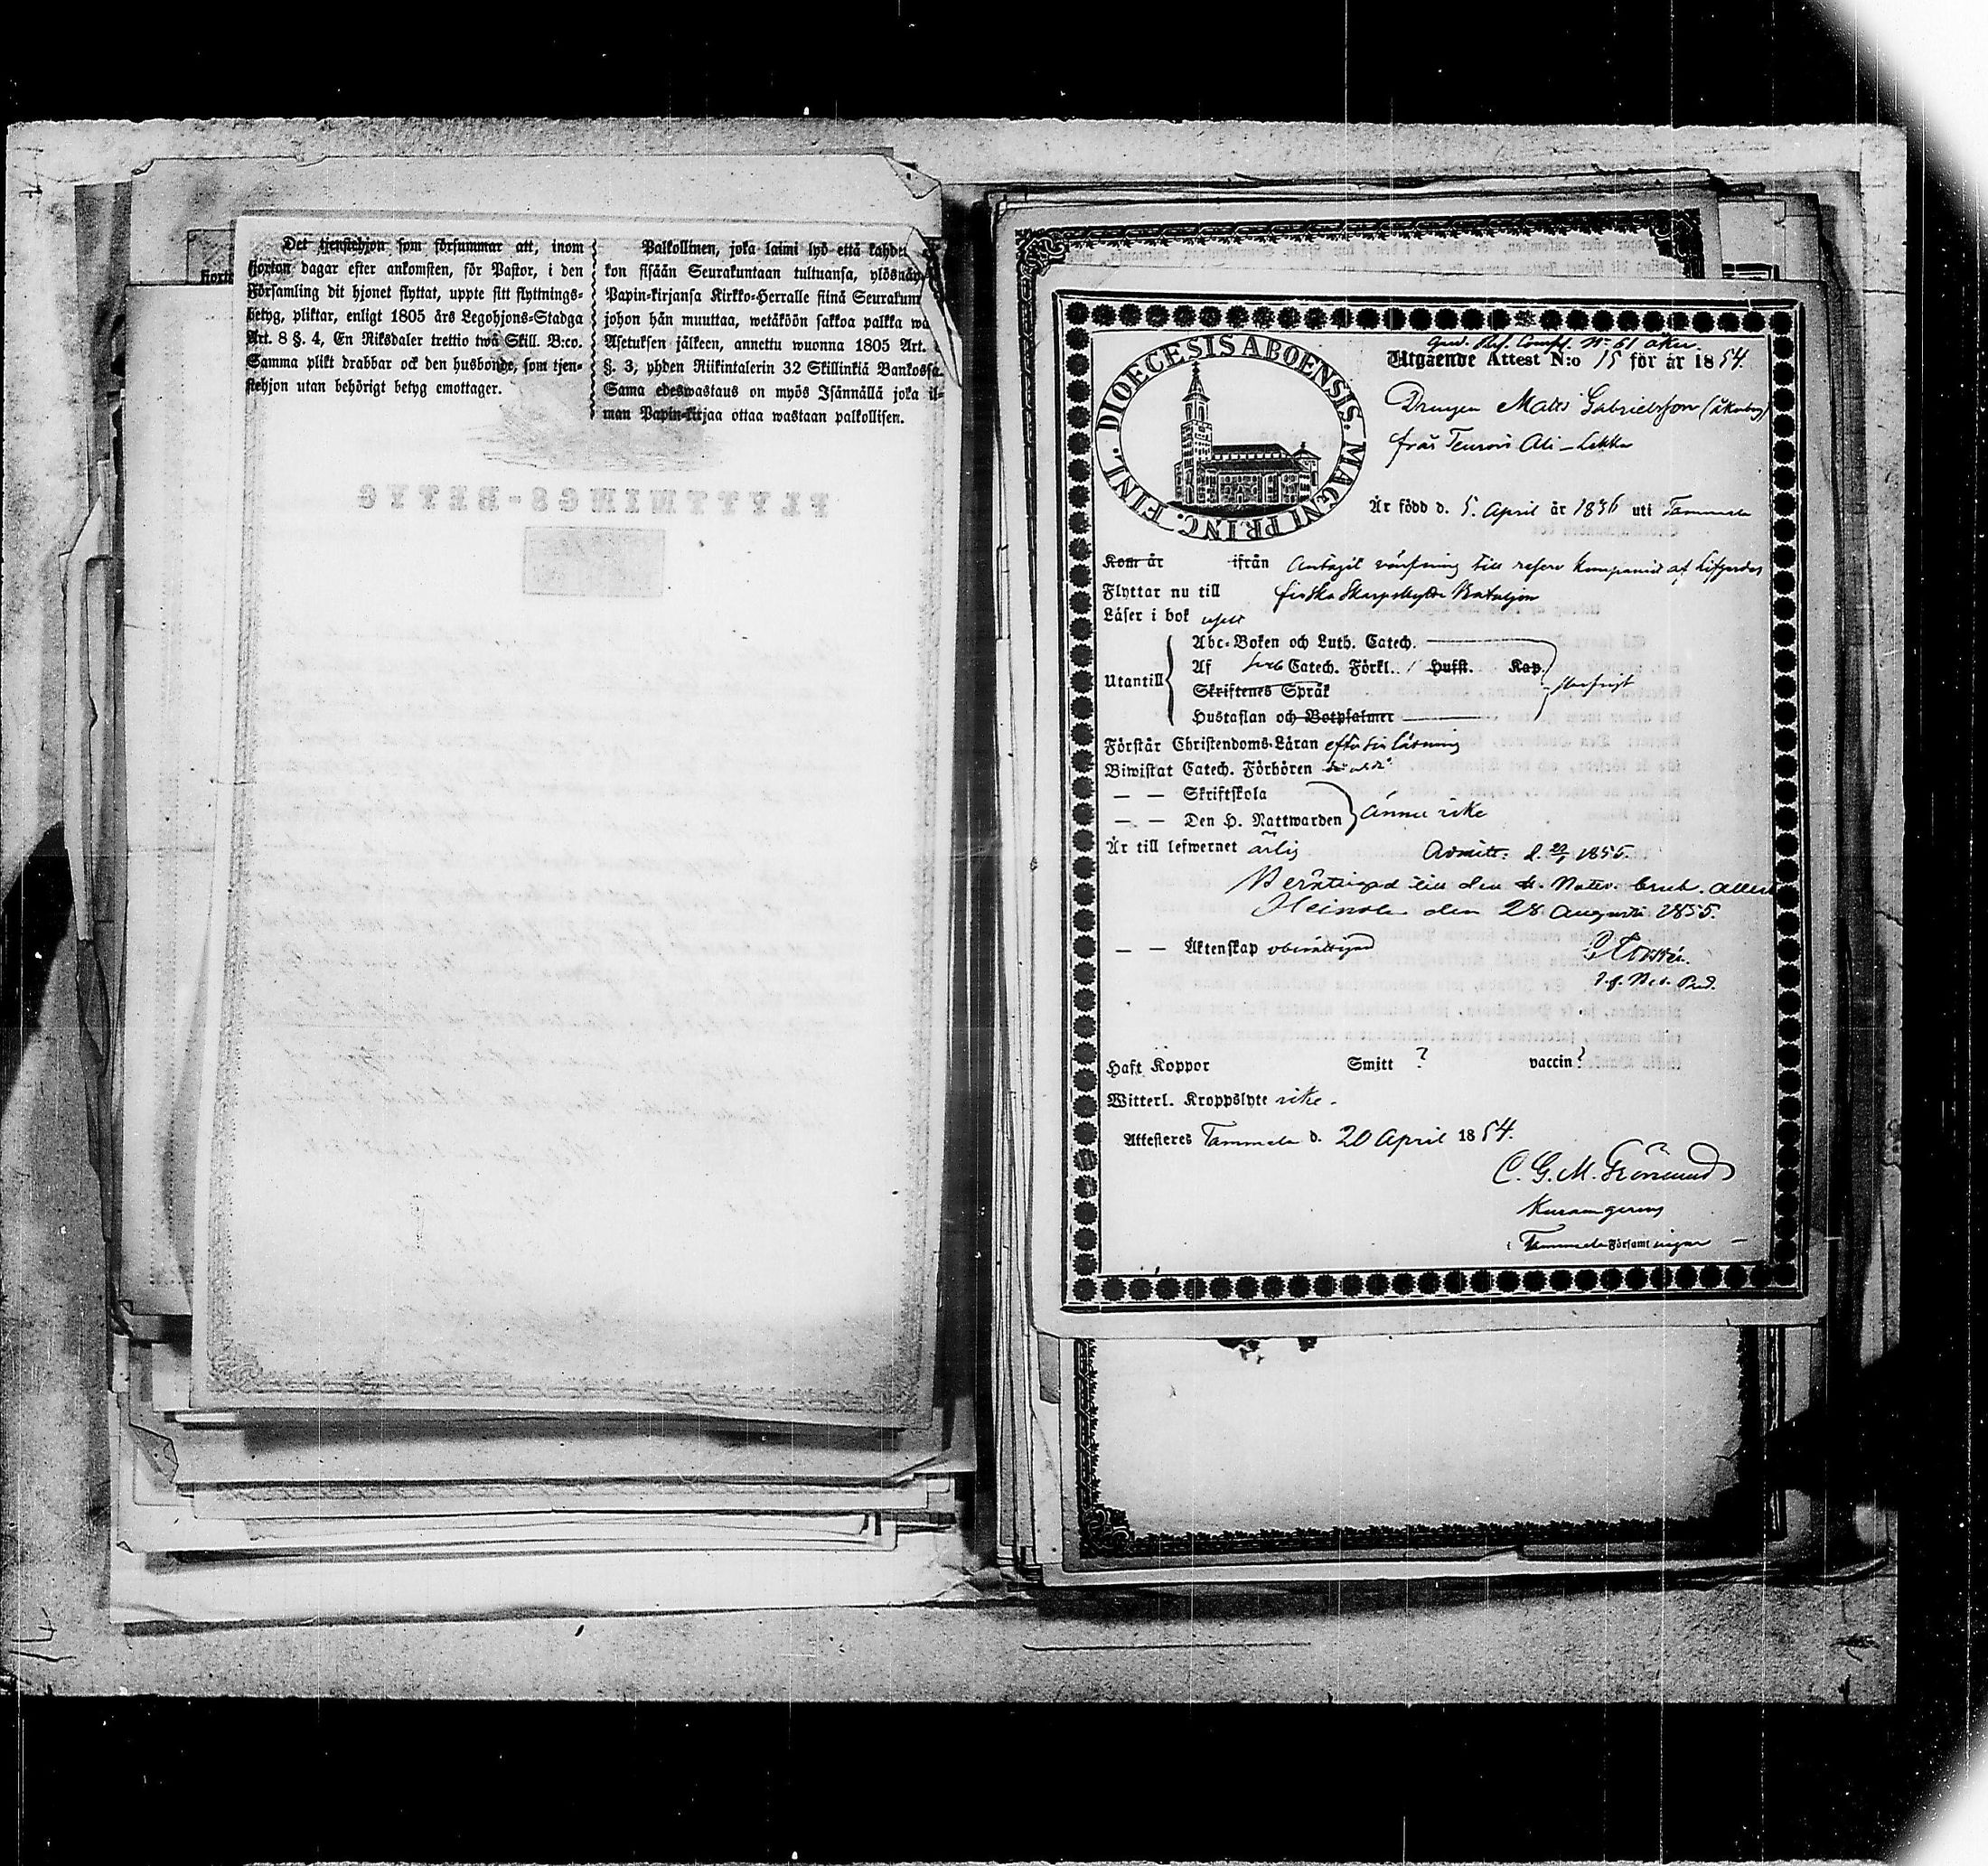 Det tjenstehjon som försummar att, inom
fjorton dagar efter ankomsten, för Pastor, i den
Församling dit hjonet flyttat, uppte sitt flyttnings-
betyg, pliktar, enligt 1805 års Legohjons-Stadga
Art. 8 §. 4, En Riksdaler trettio twå Skill. B:co.
Samma plikt drabbar ock den husbonde, som tjen-
stehjon utan behörigt betyg emottager.
Palkollinen, joka laimi lyö että kahde
kon sisään Seurakuntaan tultuansa, ylösnäy
Papin-kirjansa Kirkko-Herralle siinä Seurakun
johon hän muuttaa, wetäköön sakkoa palkka wu
Asetuksen jälkeen, annettu wuonna 1805 Art.
§. 3, yhden Riikintalerin 32 Skillinkiä Bankossa.
Sama edeswastaus on myös Isännällä joka il-
man Papin-kirjaa ottaa wastaan palkollisen.
FLYTTNINGS-BETYG
DIOECESIS ABOENSIS. MAGNI PRINC. FINL.
Gard. Res. Comp. No 61 åker.
Utgående Attest N:o 15 för år 1854.
Drengen Matts Gabrielsson
från Teuro Ali-Lekka
Är född d. 5. April år 1836 uti Tammela
Kom år ifrån Antagit värfning till reserv kompaniet af Lifgardes
Flyttar nu till finska Skarpskytte Bataljon
Läser i bok
Abc-Boken och Luth. Catech.
Utantill Af Catech. Förkl. Husst. Kap.
Skriftenes Språk
Hustaflan och Botpsalmer
Förstår Christendoms-Läran efter sin läsning
Biwistat Catech. Förhören
— — Skriftskola
— — Den H. Nattwarden ännu icke
Är till lefwernet ärlig Admitt: d. 1855.
Berättigad till den H. Nattv. bruk. attest
Heinola den 28 Augusti 1855.
— — Äktenskap oberättigad
Haft Koppor Smitt ? vaccin ?
Witterl. Kroppslyte icke.
Attesteres Tammela d. 20 April 1854.
C. G. M.
i Tammela Församlingar —